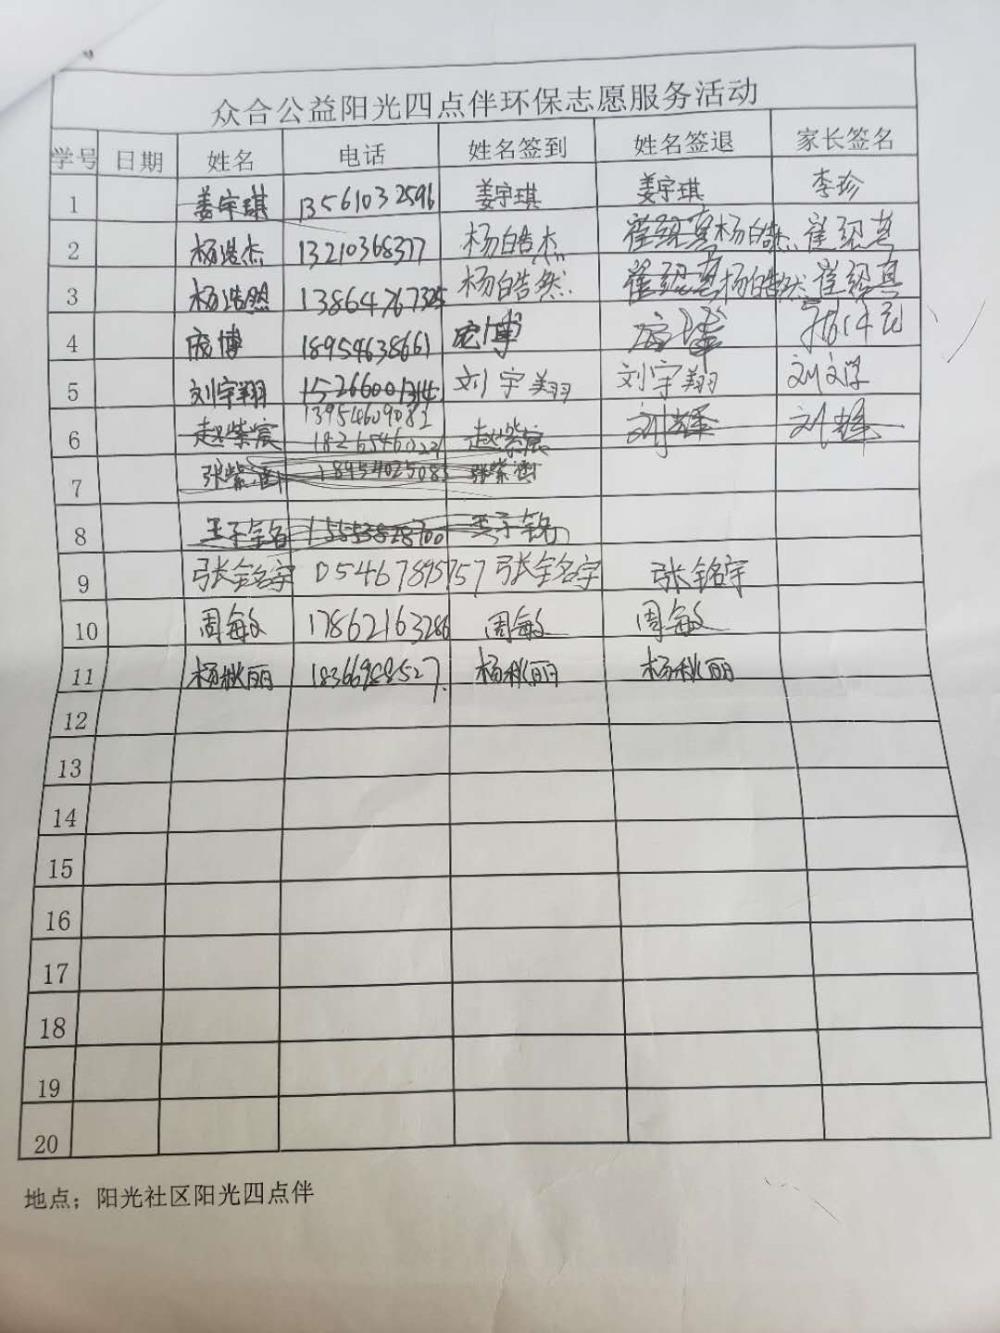 众合公益阳光四点伴环保志愿服务活动
学号 日期 姓名 电话 姓名签到 姓名签退 家长签名
1 姜宇琪 13561032596 姜宇琪 姜宇琪 李珍
2 杨浩杰 13210368377 杨皓杰 崔绍真杨皓杰 崔绍真
3 杨浩然 13864767325 杨皓然 崔绍真杨皓然 崔绍真
4 庞博 18954638661 庞博
5 刘宇翔 15266001314 刘宇翔 刘宇翔 刘文学
13954609081
6 赵紫宸 赵紫宸 刘辉 刘辉
7 张紫涵 18954025083 张紫涵
8 王子铭 15553828700 王子铭
9 张铭宇 05467895757 张铭宇 张铭宇
10 周敏 17862163286 周敏 周敏
11 杨秋丽 18366988527 杨秋丽 杨秋丽
12
13
14
15
16
17
18
19
20
地点；阳光社区阳光四点伴